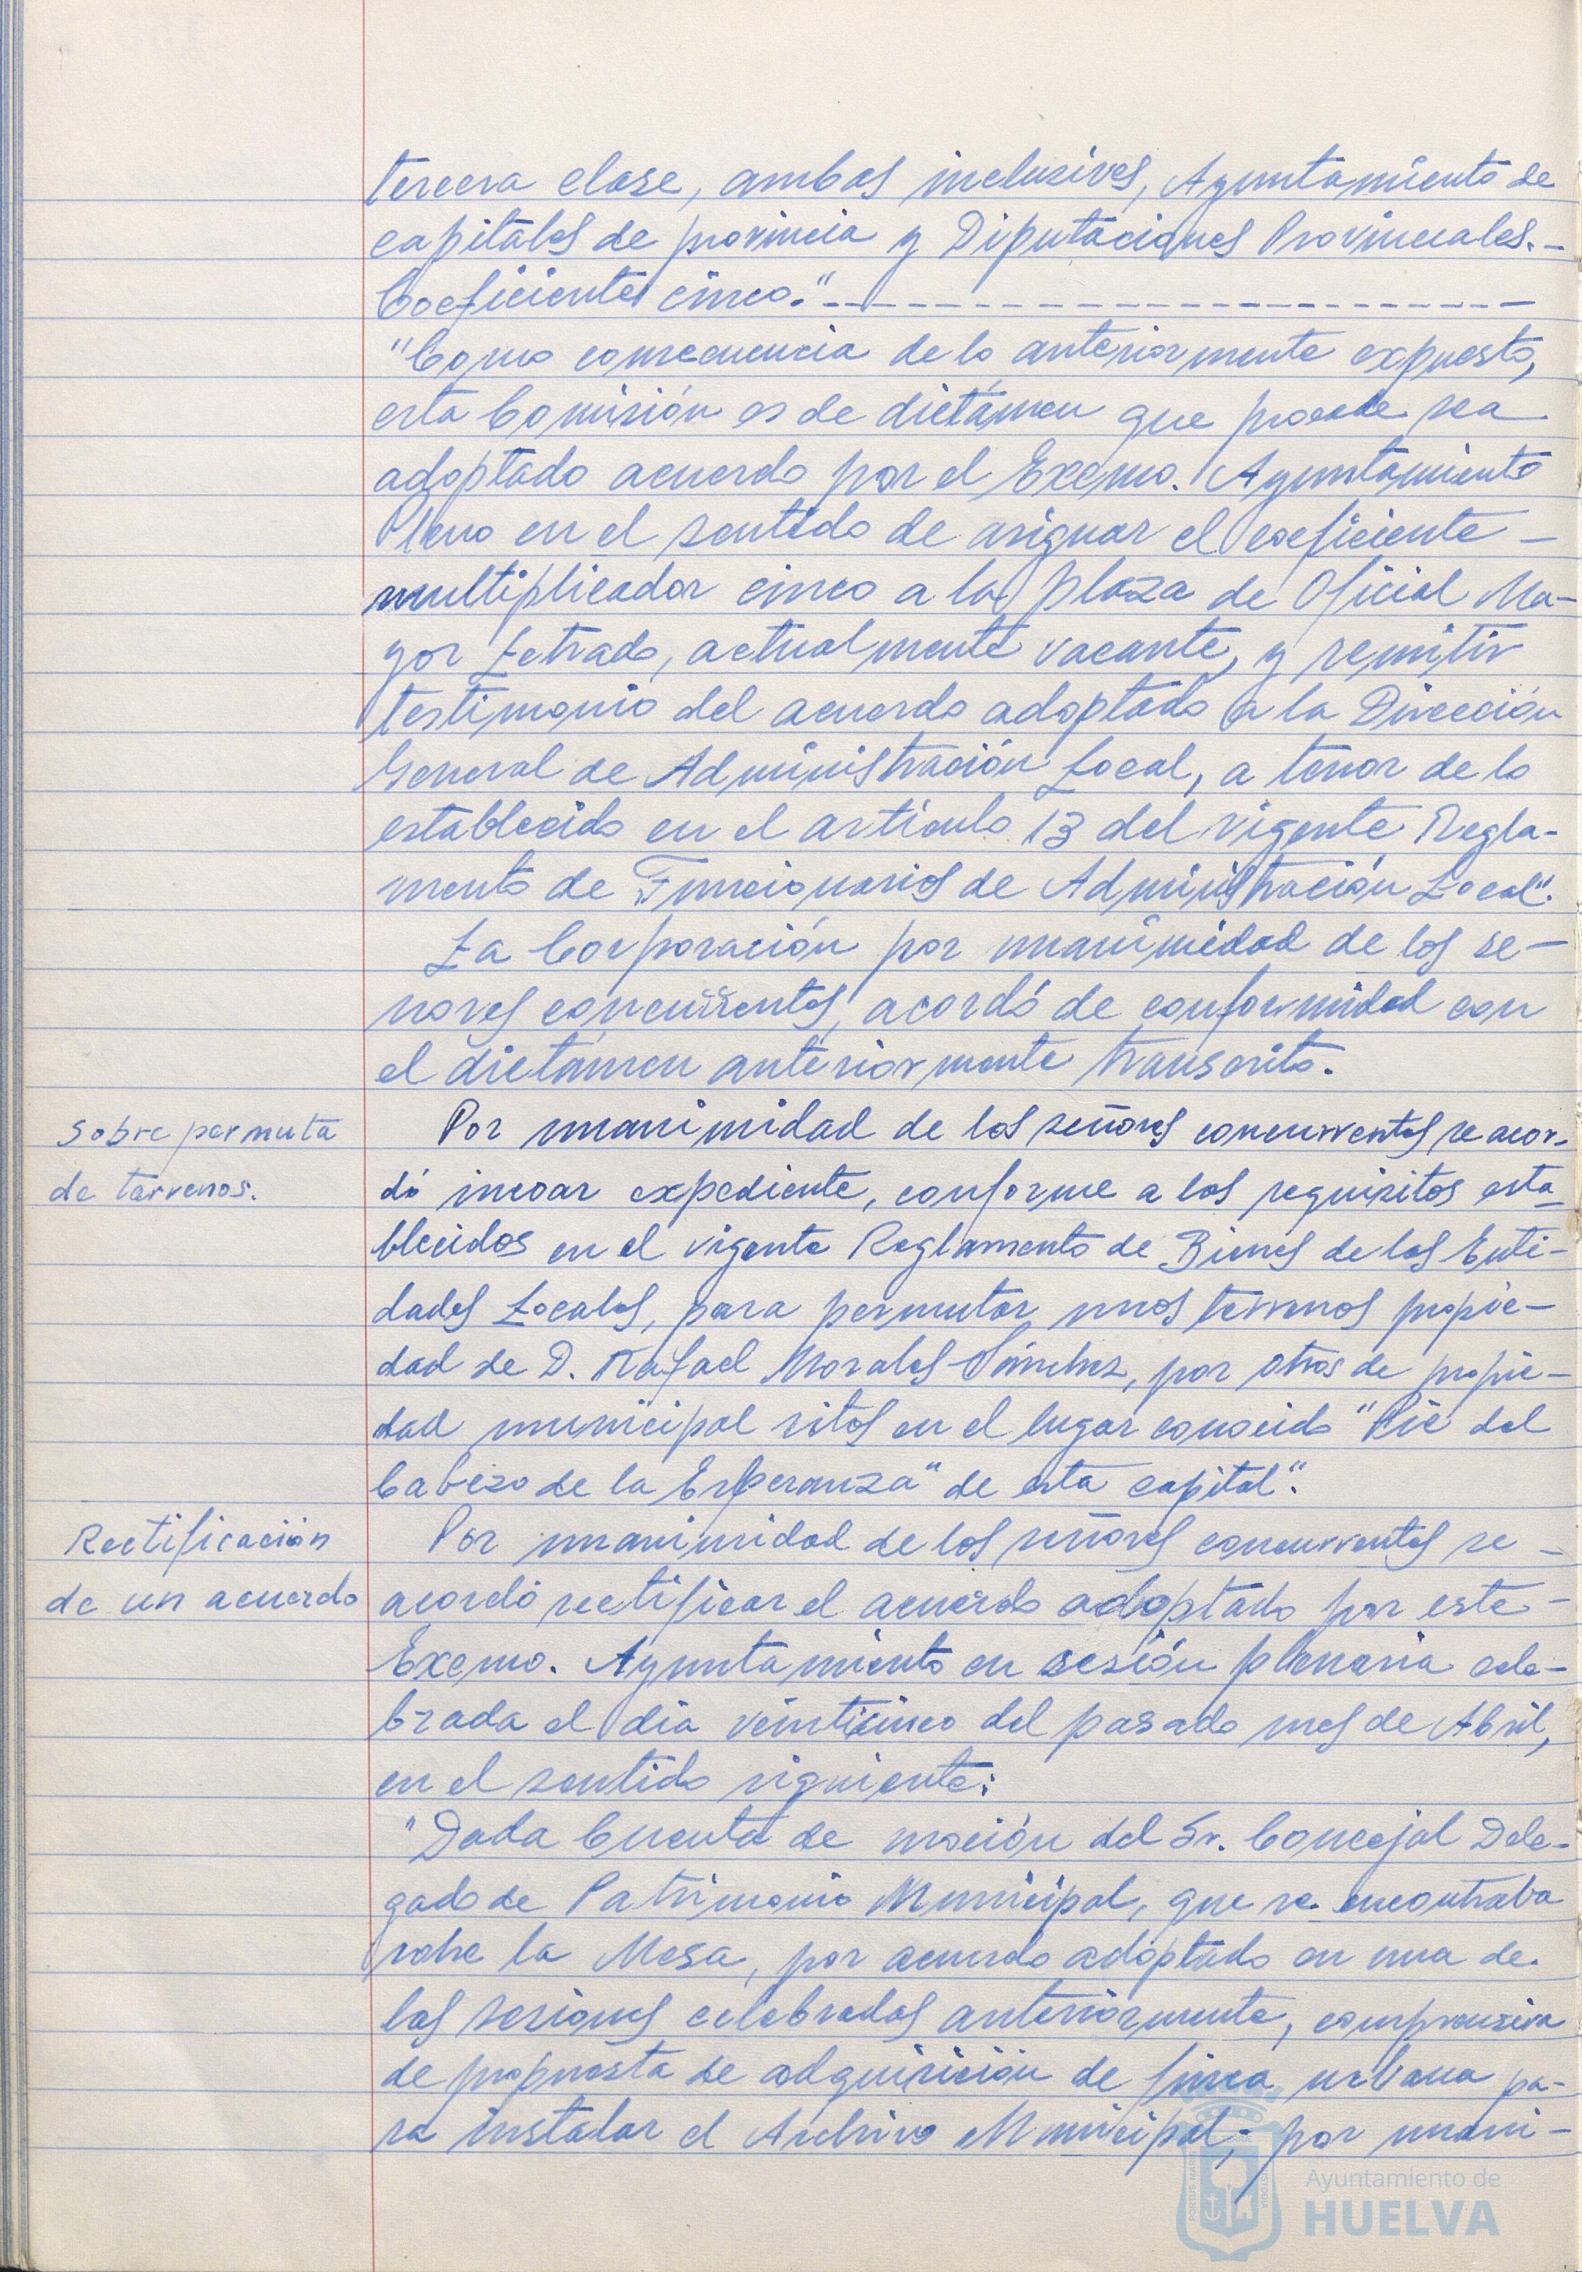 tercera clase, ambos inclusives, Ayuntamiento de
capitales de provincia y Diputaciones Provinciales.-
Coeficiente cinco."------------------------
"Como consecuencia de lo anteriormente expuesto,
esta Comisión es de dictámen que procede sea
adoptado acuerdo por el Excmo. Ayuntamiento
Pleno en el sentido de asignar el coeficiente -
multiplicador cinco a la plaza de Oficial Ma-
yor Letrado, actualmente vacante, y remitir
testimonio del acuerdo adoptado a la Dirección
General de Administración Local, a tenor de lo
establecido en el artículo 13 del vigente Regla-
mento de Funcionarios de Administración Local".
La Corporación por unanimidad de los se-
ñores concurrentes, acordó de conformidad con
el dictámen anteriormente transcrito.
Sobre permuta
de terrenos.
Por unanimidad de los señores concurrentes se acor-
dó incoar expediente, conforme a los requisitos esta-
blecidos en el vigente Reglamento de Bienes de las Enti-
dades Locales, para permutar unos terrenos propie-
dad de D. Rafael Morales Sánchez, por otros de propie-
dad municipal sitos en el lugar conocido "Pie del
Cabezo de la Esperanza" de esta capital".
Rectificación
de un acuerdo
Por unanimidad de los señores concurrentes se -
acordó rectificar el acuerdo adoptado por este -
Excmo. Ayuntamiento en sesión plenaria cele-
brada el día veinticinco del pasado mes de Abril,
en el sentido siguiente:
"Dada Cuenta de moción del Sr. Concejal Dele-
gado de Patrimonio Municipal, que se encontraba
sobre la Mesa, por acuerdo adoptado en una de
las sesiones celebradas anteriormente, comprensiva
de propuesta de adquisición de finca urbana pa-
ra instalar el Archivo Municipal; por unani-
PORTUS MARIS
CUSTODIA
Ayuntamiento de
HUELVA